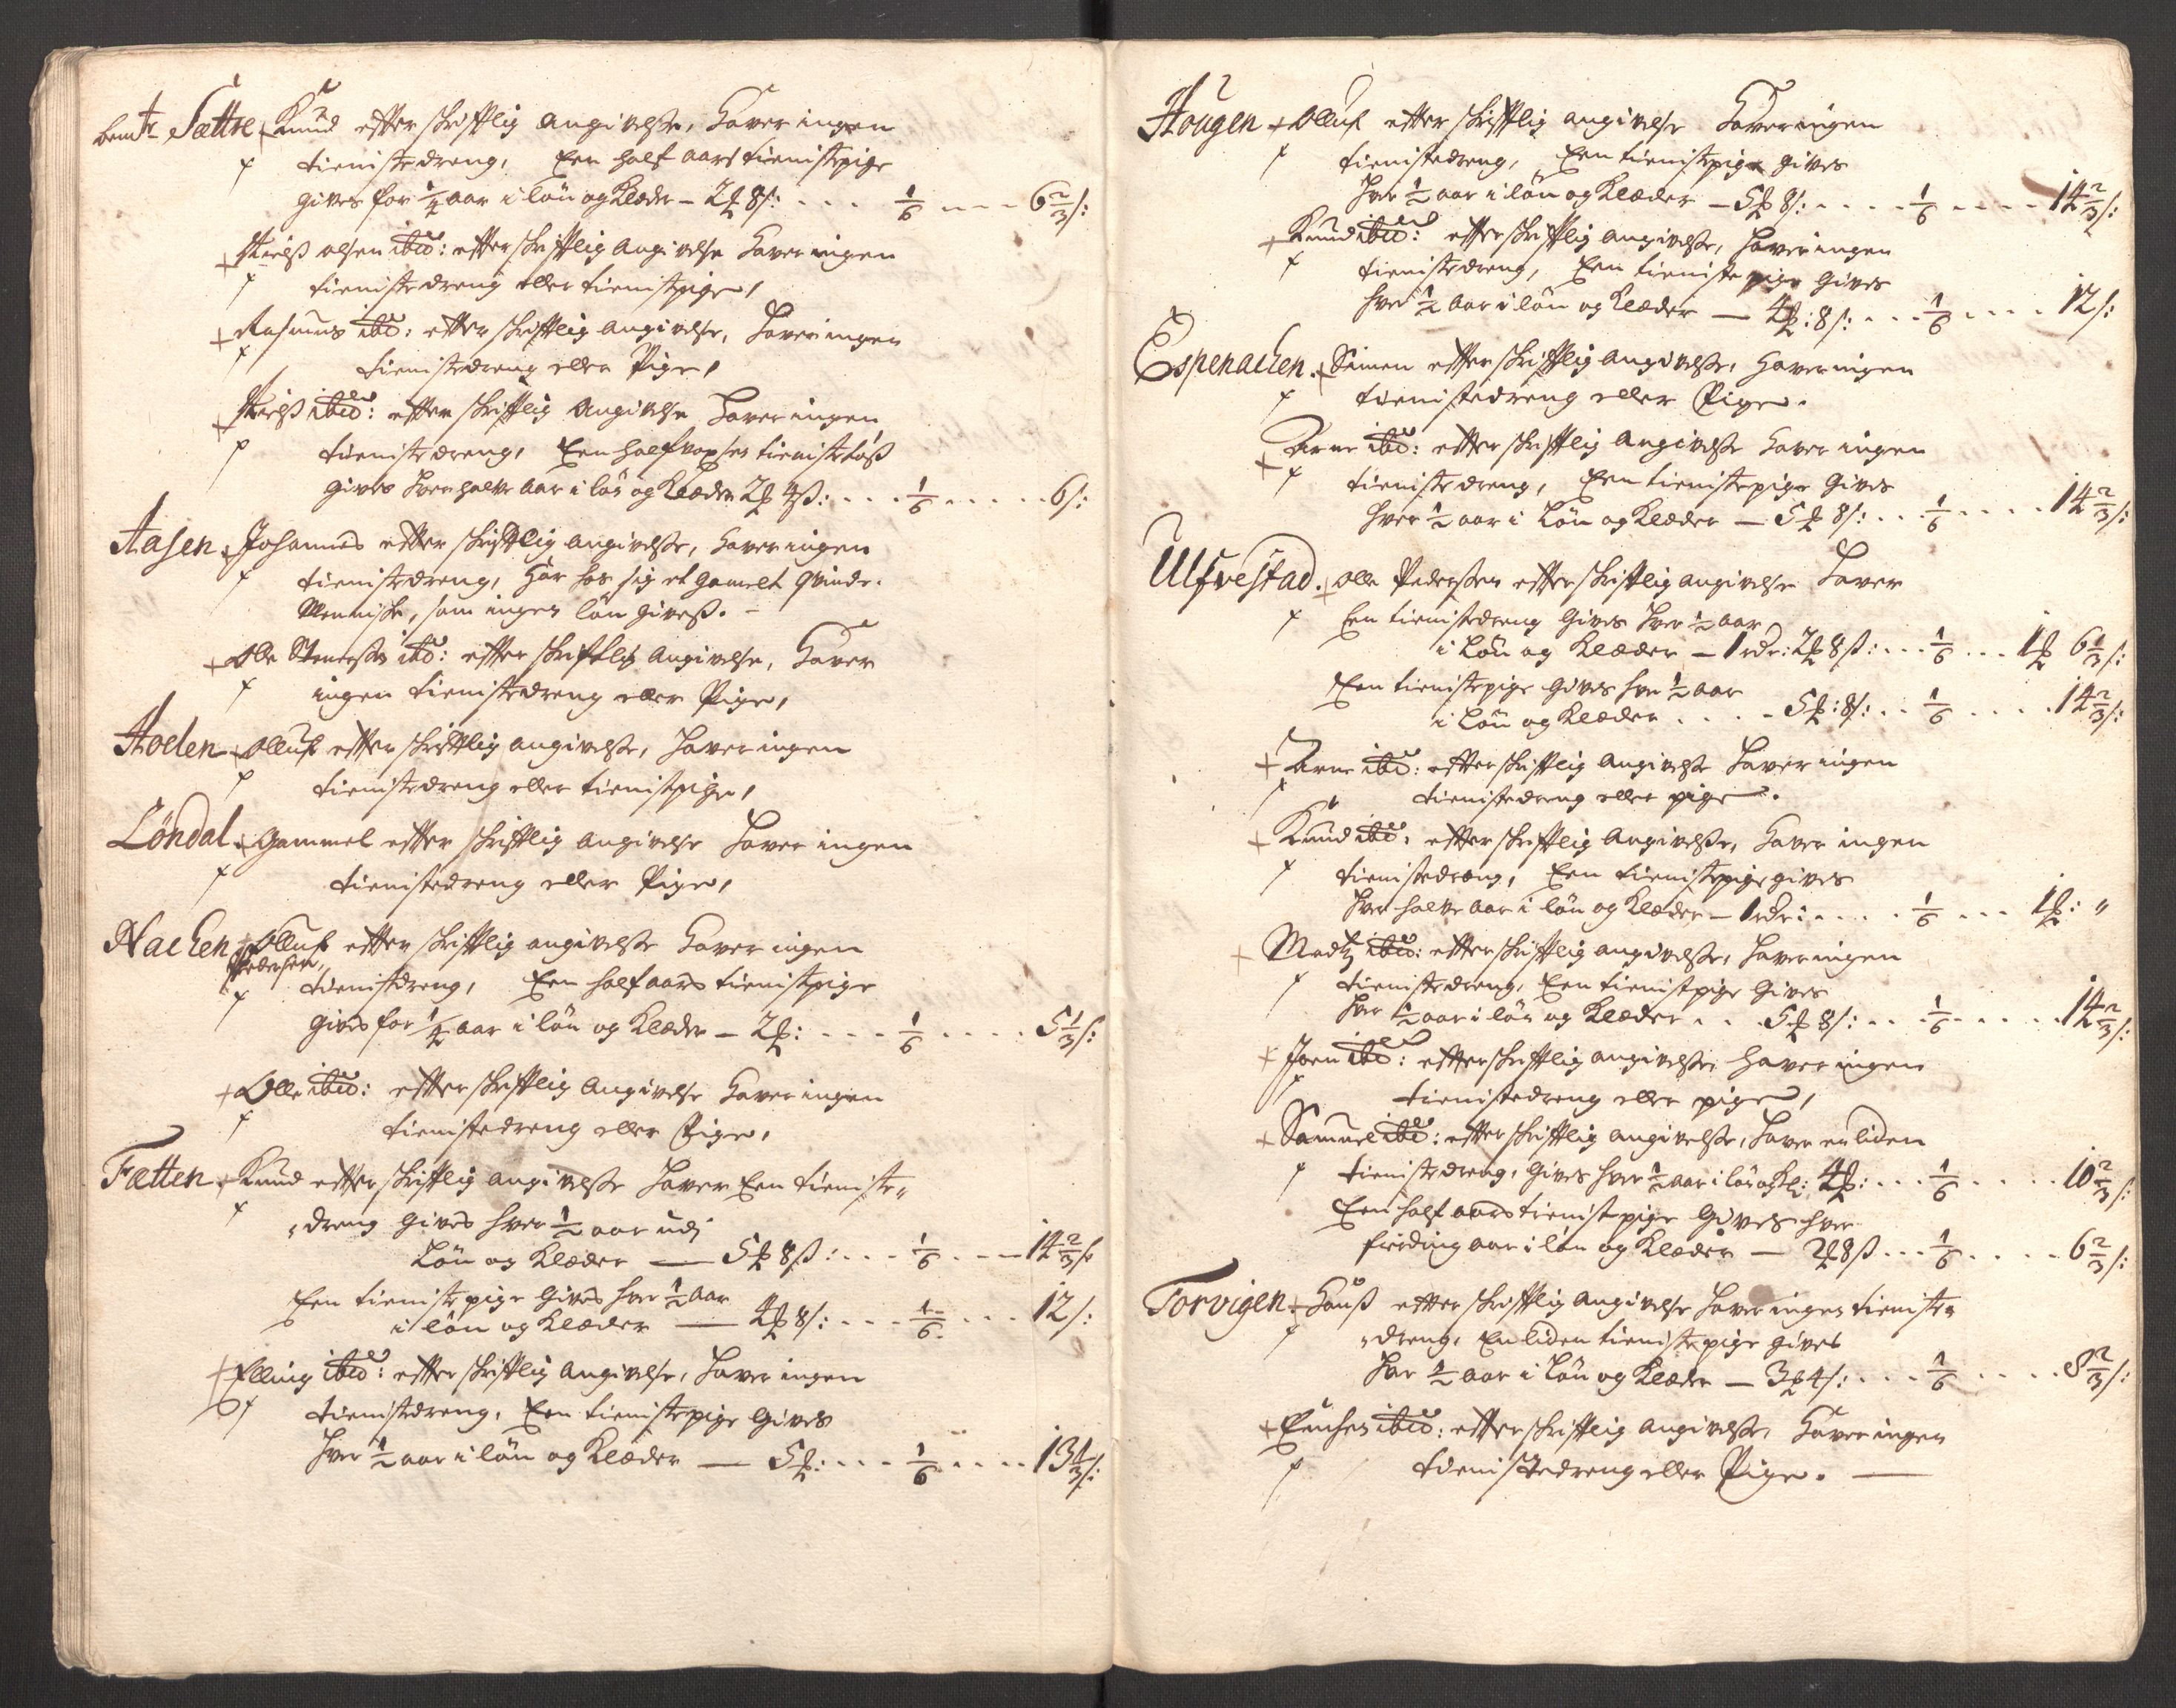 bemte Sættre + Knud efter skrifftlig angivelse, haver ingen
tienistedreng, Een half aars tienistepige
gives for 1/4 aar i løn og Klæder - 2 ℔ 8 s: - - - 1/6 - - - 6 2/3 s:
+ Nielß olsen ibid: efter skrifftlig angivelse haver ingen
tienistedreng eller tienistepige,
+ Rasmus ibd: efter skrifftlig angivelse, haver ingen
tienistedreng eller Pige,
+ Nielß ibid: efter skrifftlig angivelse haver ingen
tienistedreng, Een halfvoxsen tieniste
gives hver halve aar i løn og Klæder 2 ℔ 4 ß: - - - 1/6 - - - - 6 s:
Aasen + Johannes efter skrifftlig angivelse, haver ingen
tienistedreng, Har hos sig et gamelt Qvinde-
Menniske, som ingen løn giveß. -
+ Olle ibd: efter skrifftlig angivelse, Haver
ingen tienistedreng eller Pige,
Hoelen + Olluf efter skrifftlig angivelse, haver ingen
tienistedreng eller tienistpige,
Löndal + Gammel efter skrifftlig angivelse haver ingen
tienistedreng eller Pige,
Nacken + Olluf efter skrifftlig angivelse haver ingen
Pedersen,
tienistdreng, Een half aars tienistpige
gives for 1/4 aar i løn og Klæder - 2 ℔: - - - 1/6 - - - - 5 1/3 s:
+ Olle ibid: efter skrifftlig angivelse haver ingen
tienistedreng eller Pige,
Fætten + Knud efter skrifftlig angivelse haver Een tieniste-
-dreng gives hver 1/2 aar udj
Løn og Klæder — 5 ℔ 8 ß: - - - 1/6 - - - 14 2/3 s
Een tienistepige gives hver 1/2 aar
i løn og Klæder — 4 ℔ 8 s: - - - 1/6 - - - 12 s:
+ Elling ibid: efter skrifftlig angivelse, haver ingen
tienistedreng, Een tienistepige Gives
hver 1/2 aar i løn og Klæder — 5 ℔: - - - 1/6 - - - - 13 1/3 s:
Hougen + Olluf efter skrifftlig angivelse haver ingen
tienistedreng, Een tienistpige gives
hver 1/2 aar i løn og Klæder - 5 ℔ 8 s: - - - - 1/6 - - - - 14 2/3 s:
+ Knud ibid: efter skrifftlig angivelse, haver ingen
tienistedreng, Een tienistepige Gives
hver 1/2 aar i løn og Klæder — 4 ℔: 8 s: - - - 1/6 - - - - 12 s:
Espenacken. + Simen efter skrifftlig angivelse, haver ingen
tienistedreng eller Pige.
+ Arne ibd: efter skrifftlig angivelse haver ingen
tienistedreng, Een tienistepige Gives
hver 1/2 aar i Løn og Klæder — 5 ℔ 8 s: - - 1/6 - - - - 14 2/3 s:
Ulfvestad. + Olle Pederssen efter skrifftlig angivelse haver
Een tienistedreng Gives hver 1/2 aar
i Løn og Klæder — 1 rdr: 2 ℔ 8 ß: - - - 1/6 - - - 1 ℔ 6 1/3 s:
Een tienistepige Gives hver 1/2 aar
i Løn og Klæder - - - - 5 ℔: 8 s: - - 1/6 - - - - 14 2/3 s:
+ Arne ibd: efter skrifftlig angivelse haver ingen
tienistedreng eller pige.
+ Knud ibd: efter skrifftlig angivelse, haver ingen
tienistedreng, Een tienistepige gives
hver halve aar i løn og Klæder - 1 rdr: - - - - 1/6 - - - 1 ℔: "
+ Madtz ibid: efter skrifftlig angivelse, haver ingen
tienistedreng, Een tienistpige Gives
hver 1/2 aar i løn og Klæder - - 5 ℔ 8 s: - - 1/6 - - - - 14 2/3 s:
+ Joen ibd: efter skrifftlig angivelse haver ingen
tienistedreng eller pige,
+ Samuel ibd: efter skrifftlig angivelse, haver en liden
tienistedreng, gives hver 1/2 aar i løn og Kl: 4 ℔: - - - 1/6 - - - - 10 2/3 s:
Een half aars tienistpige Gives hver
fierding aar i løn og Klæder — 2 ℔ 8 ß - - - 1/6 - - - - 6 2/3 s:
Torvigen + Hanß efter skrifftlig angivelse haver ingen tieniste-
-dreng, En liden tienistepige gives
hver 1/2 aar i Løn og Klæder - 3 ℔ 4 s: - - - 1/6 - - - - 8 2/3 s:
+ ibid: efter skrifftlig angivelse, haver ingen
tienistedreng eller Pige. —